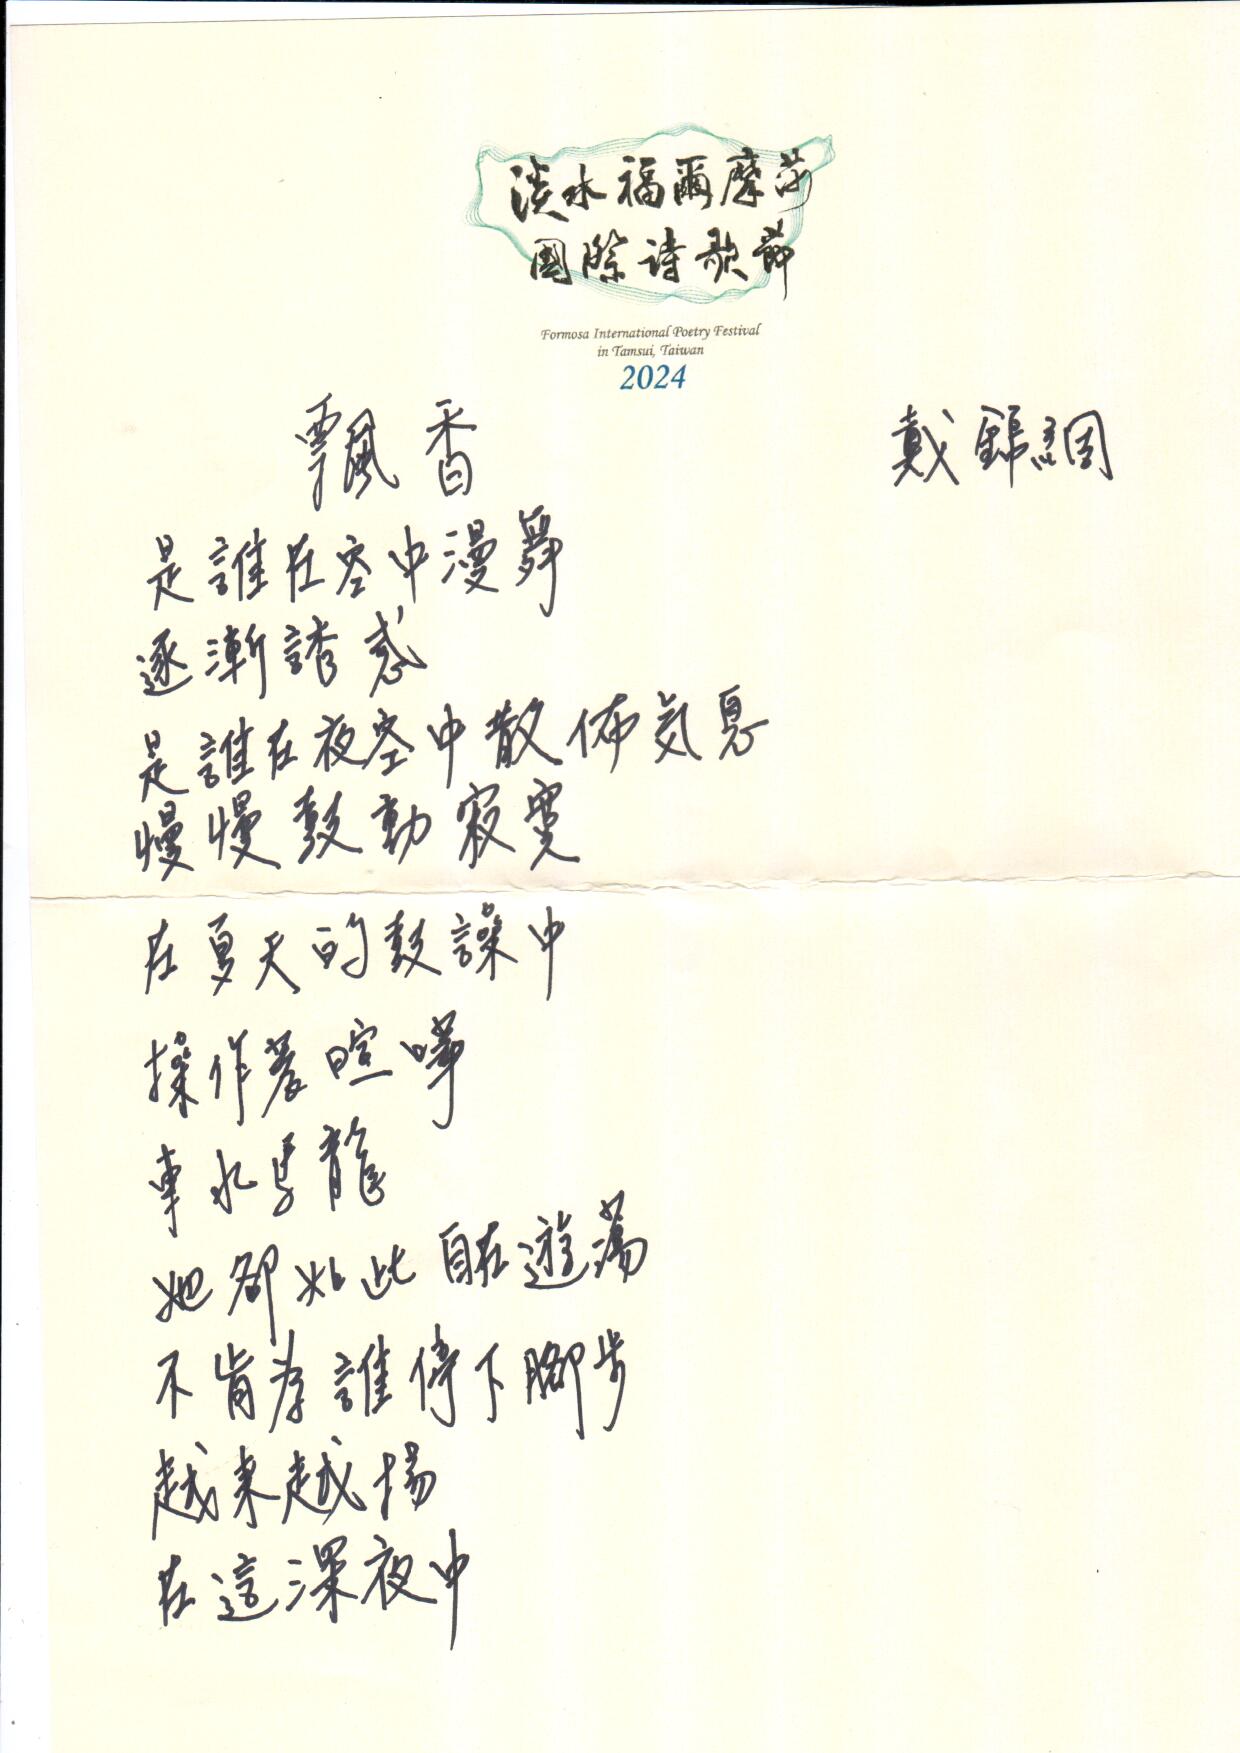 淡水福爾摩莎
國際詩歌節
Formosa International Poetry Festival
in Tamsui, Taiwan
2024
飄香 戴錦綢
是誰在空中漫舞
逐漸誘惑
是誰在夜空中散佈気息
慢慢鼓動寂寞
在夏天的鼓譟中
操作著喧嘩
車水馬龍
她卻如此自在遊蕩
不肯為誰停下腳步
越來越揚
在這深夜中